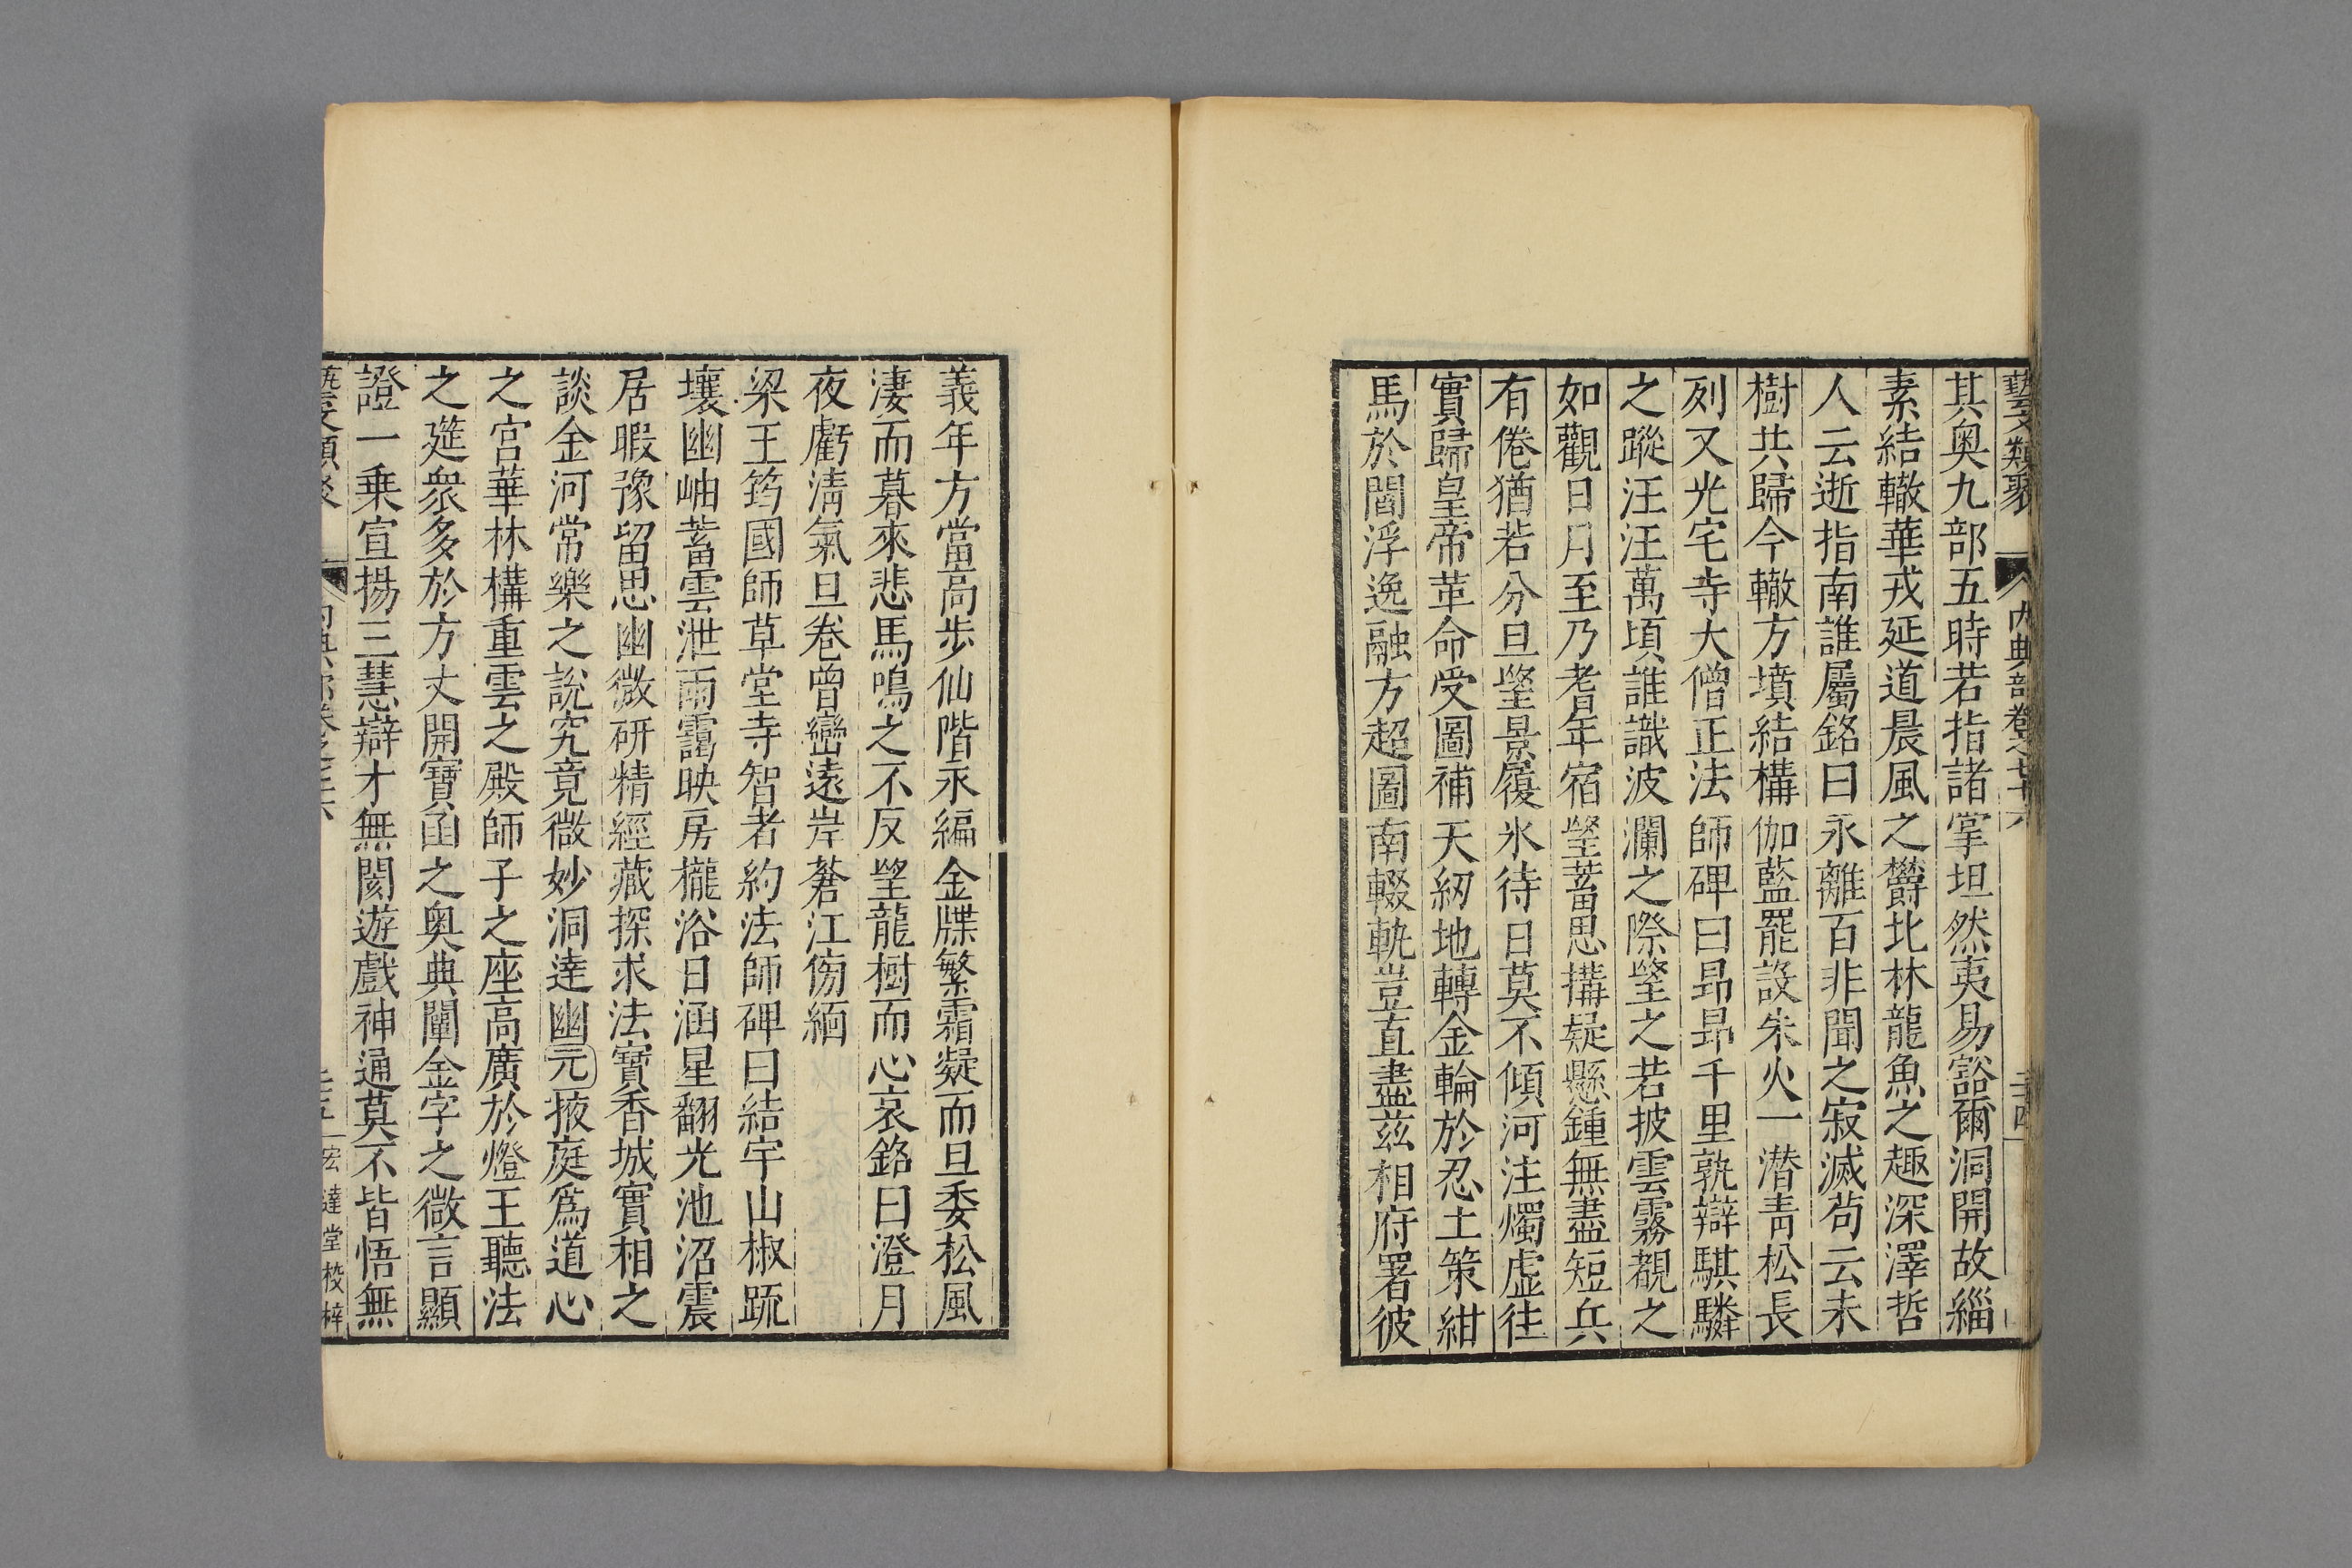 藝文類聚 內典部卷之七十六 二十四
其奥九部五時若指諸掌坦然夷易豁爾洞開故緇
素結轍華戎延道晨風之欝北林龍魚之趣深澤哲
人云逝指南誰屬銘曰永離百非聞之寂滅茍云未
樹共歸今轍方墳結構伽藍罷設朱火一潜青松長
列又光宅寺大僧正法師碑曰昻昻千里孰辯騏驎
之蹤汪汪萬頃誰識波瀾之際朢之若披雲霧覩之
如觀日月至乃耆年宿朢蓄思搆疑懸鍾無盡短兵
有倦猶若分旦朢景履氷待日莫不傾河注燭虚徃
實歸皇帝革命受圖補天紉地轉金輪於忍土策紺
馬於閻浮逸融方超圖南輟軌豈直盡茲相府署彼
義年方當高步仙階永編金牒繁霜凝而旦委松風
淒而暮來悲馬鳴之不反朢龍樹而心哀銘曰澄月
夜虧淸氣旦卷曾巒遠岸蒼江傍緬
梁王筠國師草堂寺智者約法師碑曰結宇山椒䟽
壤幽岫蓄雲泄雨靄映房櫳浴日涵星翻光池沼震
居暇豫留思幽微研精經藏探求法寶香城實相之
談金河常樂之說究竟微妙洞達幽元掖庭爲道心
之宫華林構重雲之殿師子之座高廣於燈王聽法
之筵衆多於方丈開寶函之奥典闡金字之微言顯
證一乗宣揚三慧辯才無閡遊戲神通莫不皆悟無
文類聚 內典部卷之七十六 二十五 宏達堂校梓